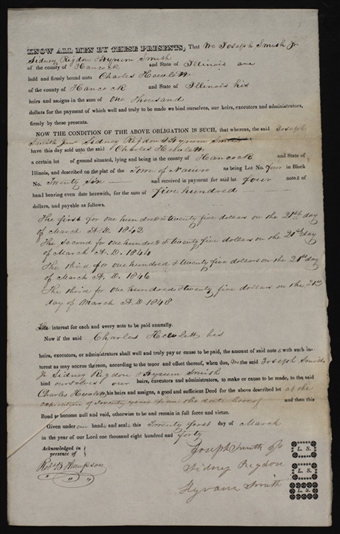 KNOW ALL MEN BY THESE PRESENTS, That We Joseph Smith Jr
Sidney Rigdon & Hyrum Smith
of the county of Hancock and State of Illinois are
held and firmly bound unto Charles
of the county of Hancock and State of Illinois his
heirs and assigns in the sum of One thousand
dollars for the payment of which well and truly to be made we bind ourselves, our heirs, executors and administrators,
firmly by these presents.
NOW THE CONDITION OF THE ABOVE OBLIGATION IS SUCH, that whereas, the said Joseph
Smith Jun Sidney Rigdon & Hyrum Smith
have this day sold unto the said Charles
a certain lot of ground situated, lying and being in the county of Hancock and State of
Illinois, and described on the plat of the Town of Nauvoo as being Lot No. Four in Block
No. Twenty Six and received in payment for said lot four notes of
hand bearing even date herewith, for the sum of five hundred
dollars, and payable as follows.
The first for one hundred & twenty five dollars on the 21st day
of March A.D. 1842
The second for one hundred & twenty five dollars on the 21st day
of March A.D. 1844
The third for one hundred & twenty five dollars on the 21st
day of March A.D. 1846
The third for one hundred & twenty five dollars on the 21st
day of March A.D. 1848
interest for each and every note to be paid annually.
Now if the said Charles his
heirs, executors or administrators shall well and truly pay or cause to be paid, the amount of said notes with such in-
terest as may accrue thereon, according to the tenor and effect thereof, when due, We the said Joseph Smith
Jr Sidney Rigdon & Hyrum Smith
bind ourselves our heirs, executors and administrators, to make or cause to be made, to the said
Charles his heirs and assigns, a good and sufficient Deed for the above described lot at the
expiration of twenty years from the date hereof and then this
Bond to become null and void, otherwise to be and remain in full force and virtue.
Given under our hands and seals this Twenty first day of March
in the year of our Lord one thousand eight hundred and forty
Acknowledged in
presence of
Robt B Thompson
Joseph Smith Jr
L. S.
Sidney Rigdon
L. S.
Hyrum Smith
L. S.